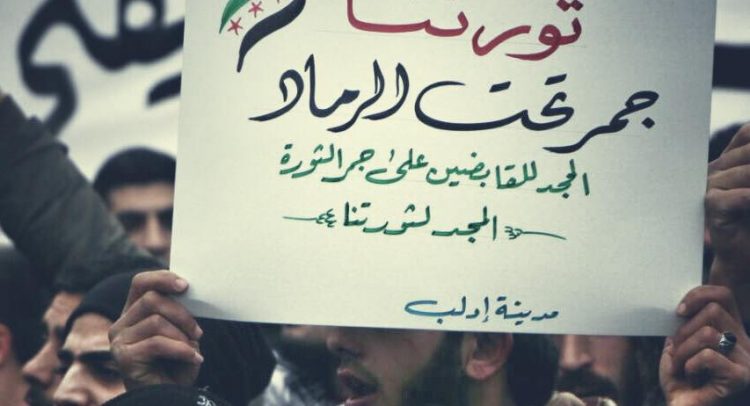 ثورتنا
جمر تحت الرماد
المجد للقابضين على جمر الثورة
المجد لثورتنا
مدينة إدلب